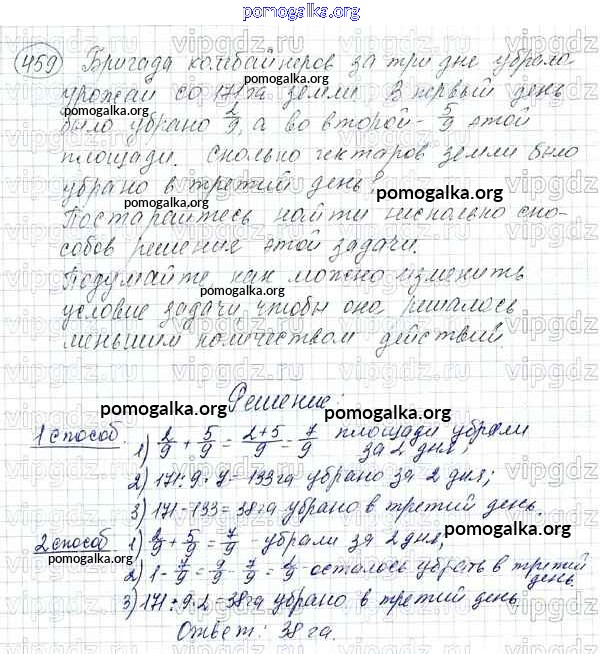 pomogalka.org
459 Бригада комбайнеров за три дне убрала
урожай со 171 га земли. В первый день
было убрано 2/9, а во второй - 5/9 этой
площади. Сколько гектаров земли было
убрано в третий день?
Постарайтесь найти несколько спо-
собов решения этой задачи.
Подумайте как можно изменить
условие задачи чтобы она решалось
меньшим количеством действий
Решение:
1 способ
1) 2/9 + 5/9 = 2+5/9 = 7/9 площади убрали за 2 дня;
2) 171:9·7=133га убрано за 2 дня;
3) 171-133=38га убрано в третий день.
2 способ 1) 2/9 + 5/9 = 7/9 - убрали за 2 дня;
2) 1 - 7/9 = 9/9 - 7/9 = 2/9 осталось убрать в третий день
3) 171:9·2=38га убрано в третий день
Ответ: 38 га.